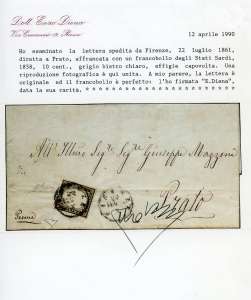 Dott. Enzo Diena
12 aprile 1990
Ho esaminato la lettera spedita da Firenze, 22 luglio 1861,
diretta a Prato, affrancata con un francobollo degli Stati Sardi,
1858, 10 cent., grigio bistro chiaro, effigie capovolta. Una
riproduzione fotografica è qui unita. A mio parere, la lettera è
originale ed il francobollo è perfetto: l'ho firmata "E.Diena",
data la sua rarità.
Sigr Giuseppe Mazzoni
Prato